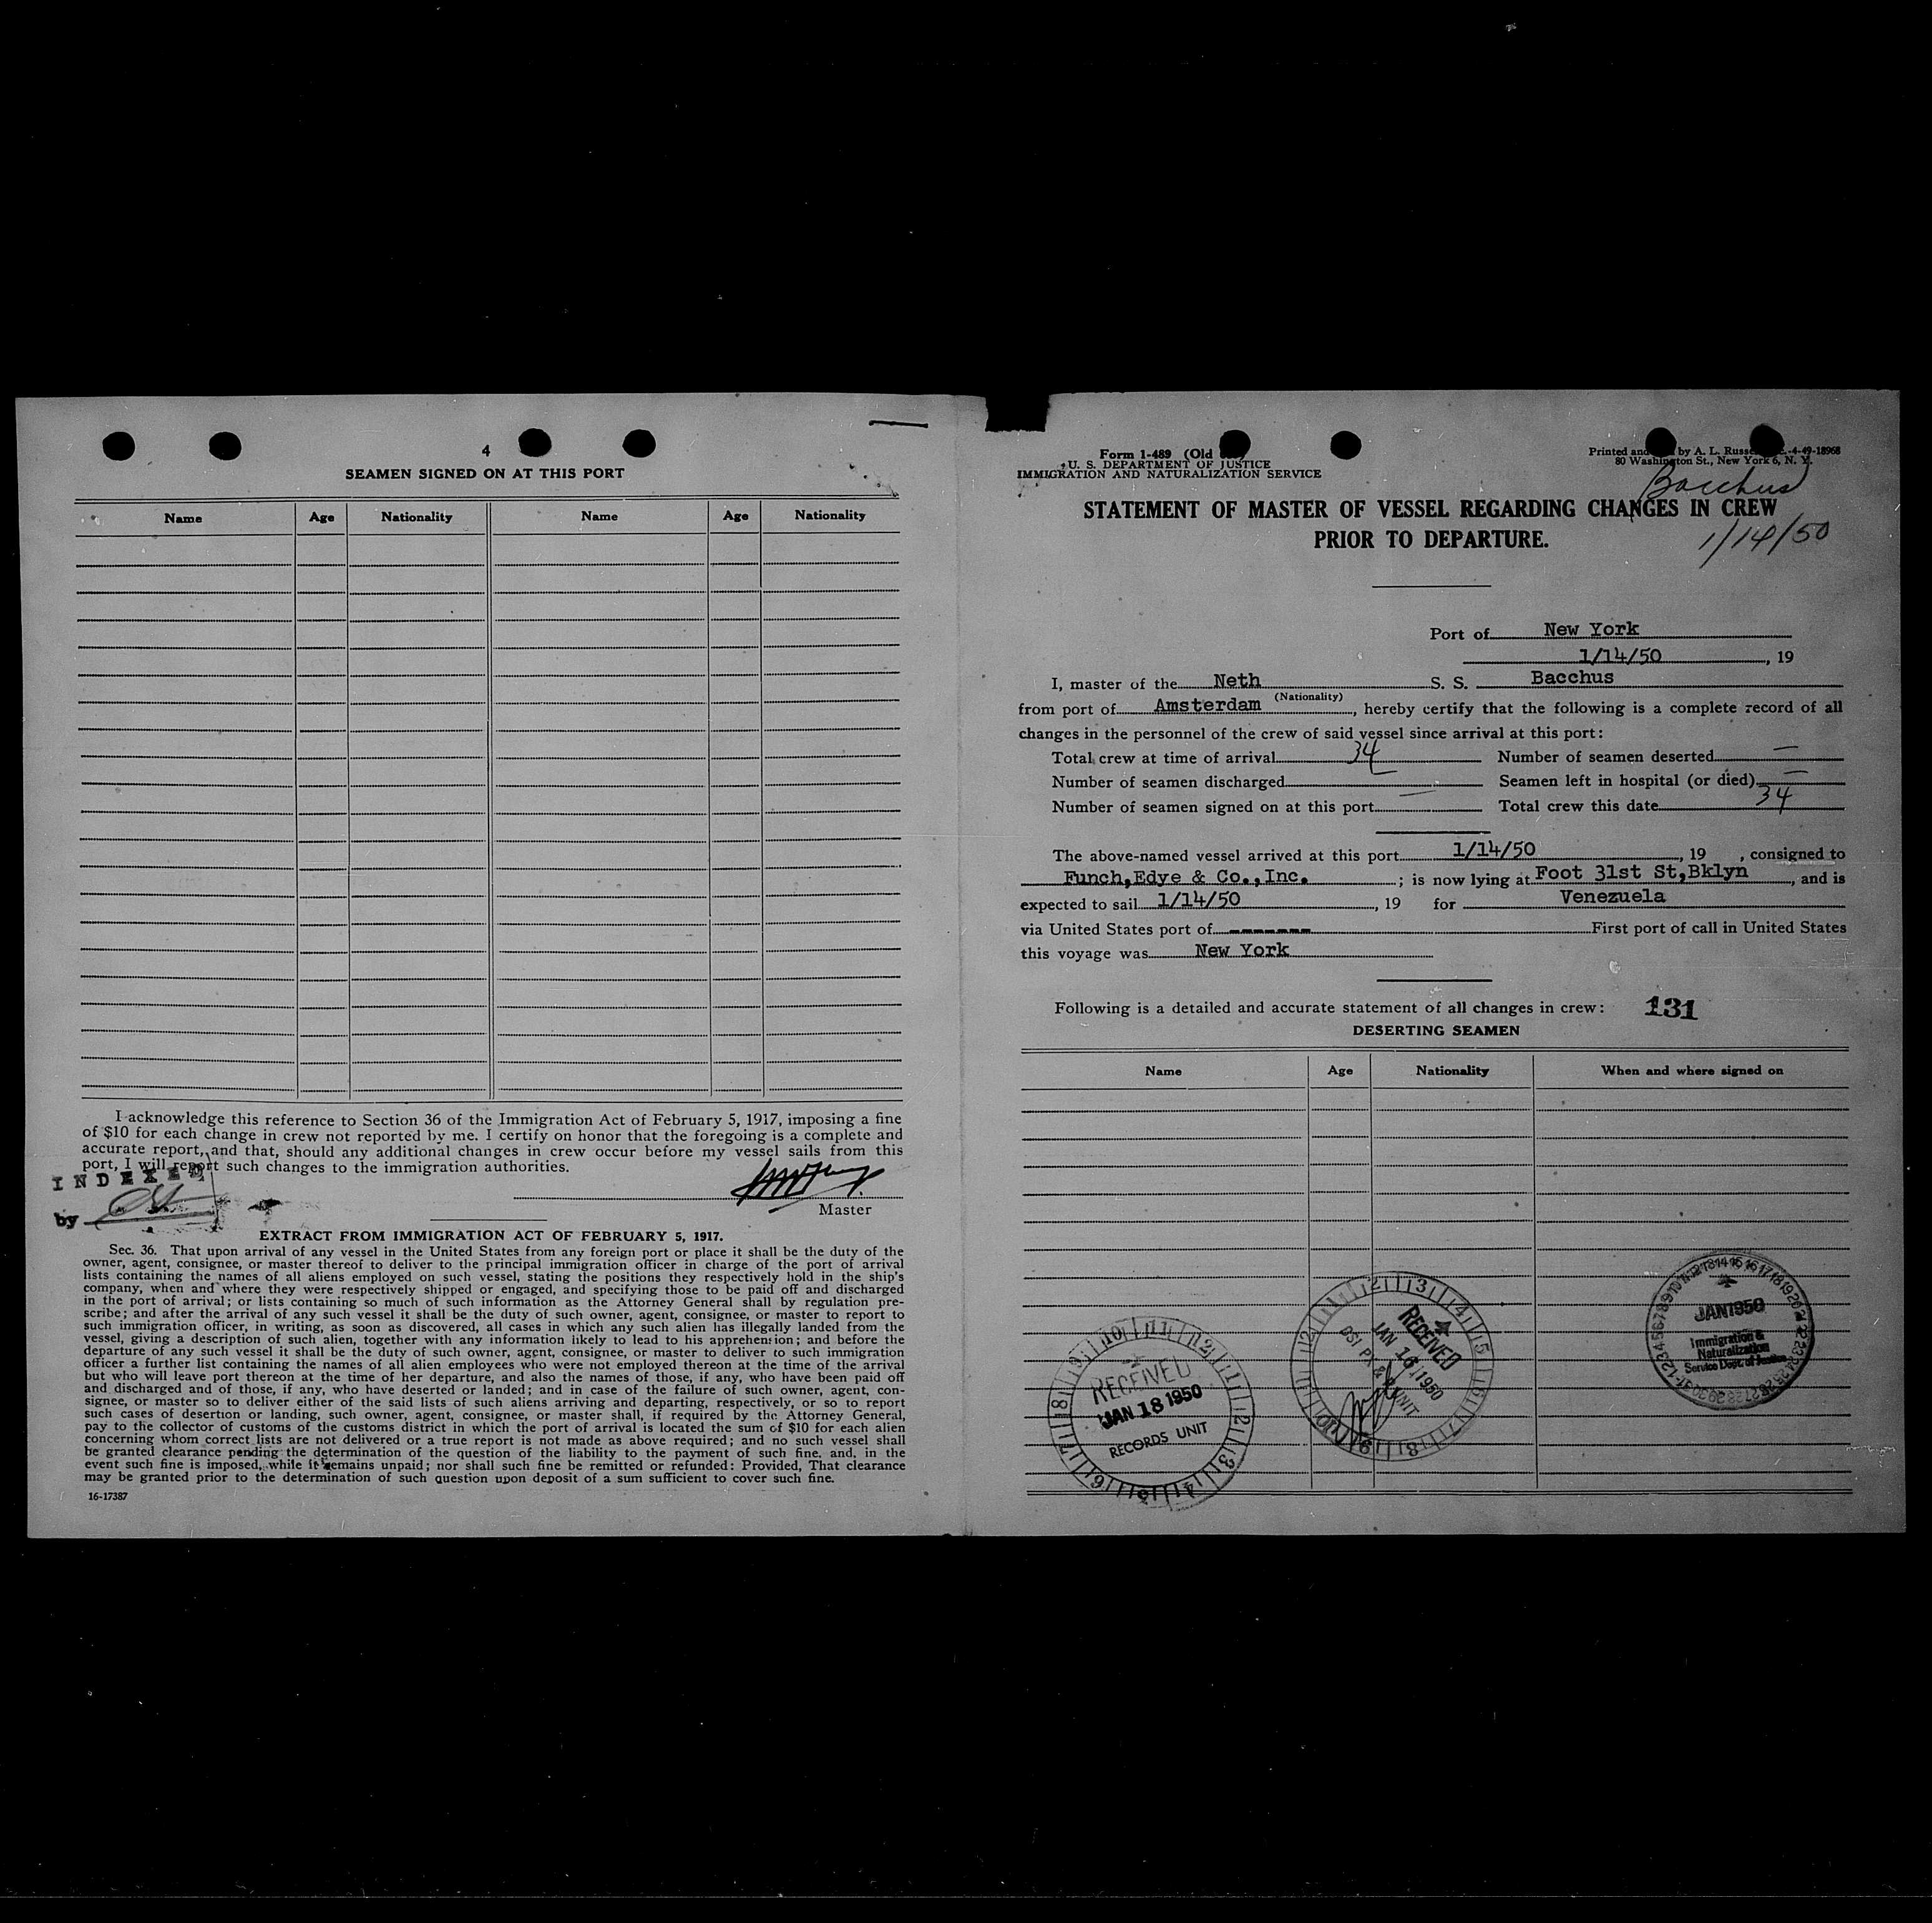 4
SEAMEN SIGNED ON AT THIS PORT
Name Age Nationality Name Age Nationality
I acknowledge this reference to Section 36 of the Immigration Act of February 5, 1917, imposing a fine
of $10 for each change in crew not reported by me. I certify on honor that the foregoing is a complete and
accurate report, and that, should any additional changes in crew occur before my vessel sails from this
port, I will report such changes to the immigration authorities.
INDEXED
by
Master
EXTRACT FROM IMMIGRATION ACT OF FEBRUARY 5, 1917.
Sec. 36. That upon arrival of any vessel in the United States from any foreign port or place it shall be the duty of the
owner, agent, consignee, or master thereof to deliver to the principal immigration officer in charge of the port of arrival
lists containing the names of all aliens employed on such vessel, stating the positions they respectively hold in the ship's
company, when and where they were respectively shipped or engaged, and specifying those to be paid off and discharged
in the port of arrival; or lists containing so much of such information as the Attorney General shall by regulation pre-
scribe; and after the arrival of any such vessel it shall be the duty of such owner, agent, consignee, or master to report to
such immigration officer, in writing, as soon as discovered, all cases in which any such alien has illegally landed from the
vessel, giving a description of such alien, together with any information likely to lead to his apprehension; and before the
departure of any such vessel it shall be the duty of such owner, agent, consignee, or master to deliver to such immigration
officer a further list containing the names of all alien employees who were not employed thereon at the time of the arrival
but who will leave port thereon at the time of her departure, and also the names of those, if any, who have been paid off
and discharged and of those, if any, who have deserted or landed; and in case of the failure of such owner, agent, con-
signee, or master so to deliver either of the said lists of such aliens arriving and departing, respectively, or so to report
such cases of desertion or landing, such owner, agent, consignee, or master shall, if required by the Attorney General,
pay to the collector of customs of the customs district in which the port of arrival is located the sum of $10 for each alien
concerning whom correct lists are not delivered or a true report is not made as above required; and no such vessel shall
be granted clearance pending the determination of the question of the liability to the payment of such fine, and, in the
event such fine is imposed, while it remains unpaid; nor shall such fine be remitted or refunded: Provided, That clearance
may be granted prior to the determination of such question upon deposit of a sum sufficient to cover such fine.
16-17387
Form 1-489 (Old
U. S. DEPARTMENT OF JUSTICE
IMMIGRATION AND NATURALIZATION SERVICE
Printed and by A. L. Russe -4-49-18968
80 Washington St., New York 6, N. Y.
Bacchus
STATEMENT OF MASTER OF VESSEL REGARDING CHANGES IN CREW
PRIOR TO DEPARTURE.
1/14/50
Port of New York
1/14/50, 19
I, master of the Neth S. S. Bacchus
(Nationality)
from port of Amsterdam, hereby certify that the following is a complete record of all
changes in the personnel of the crew of said vessel since arrival at this port:
Total crew at time of arrival 34 Number of seamen deserted —
Number of seamen discharged — Seamen left in hospital (or died) —
Number of seamen signed on at this port — Total crew this date 34
The above-named vessel arrived at this port 1/14/50, 19 , consigned to
Funch,Edye & Co.,Inc. ; is now lying at Foot 31st St,Bklyn, and is
expected to sail 1/14/50, 19 for Venezuela
via United States port of ------- First port of call in United States
this voyage was New York
Following is a detailed and accurate statement of all changes in crew: 131
DESERTING SEAMEN
Name Age Nationality When and where signed on
RECEIVED
JAN 18 1950
RECORDS UNIT
RECEIVED
JAN 16 1950
UNIT
JAN 1950
Immigration &
Naturalization
Service Dept. of Justice